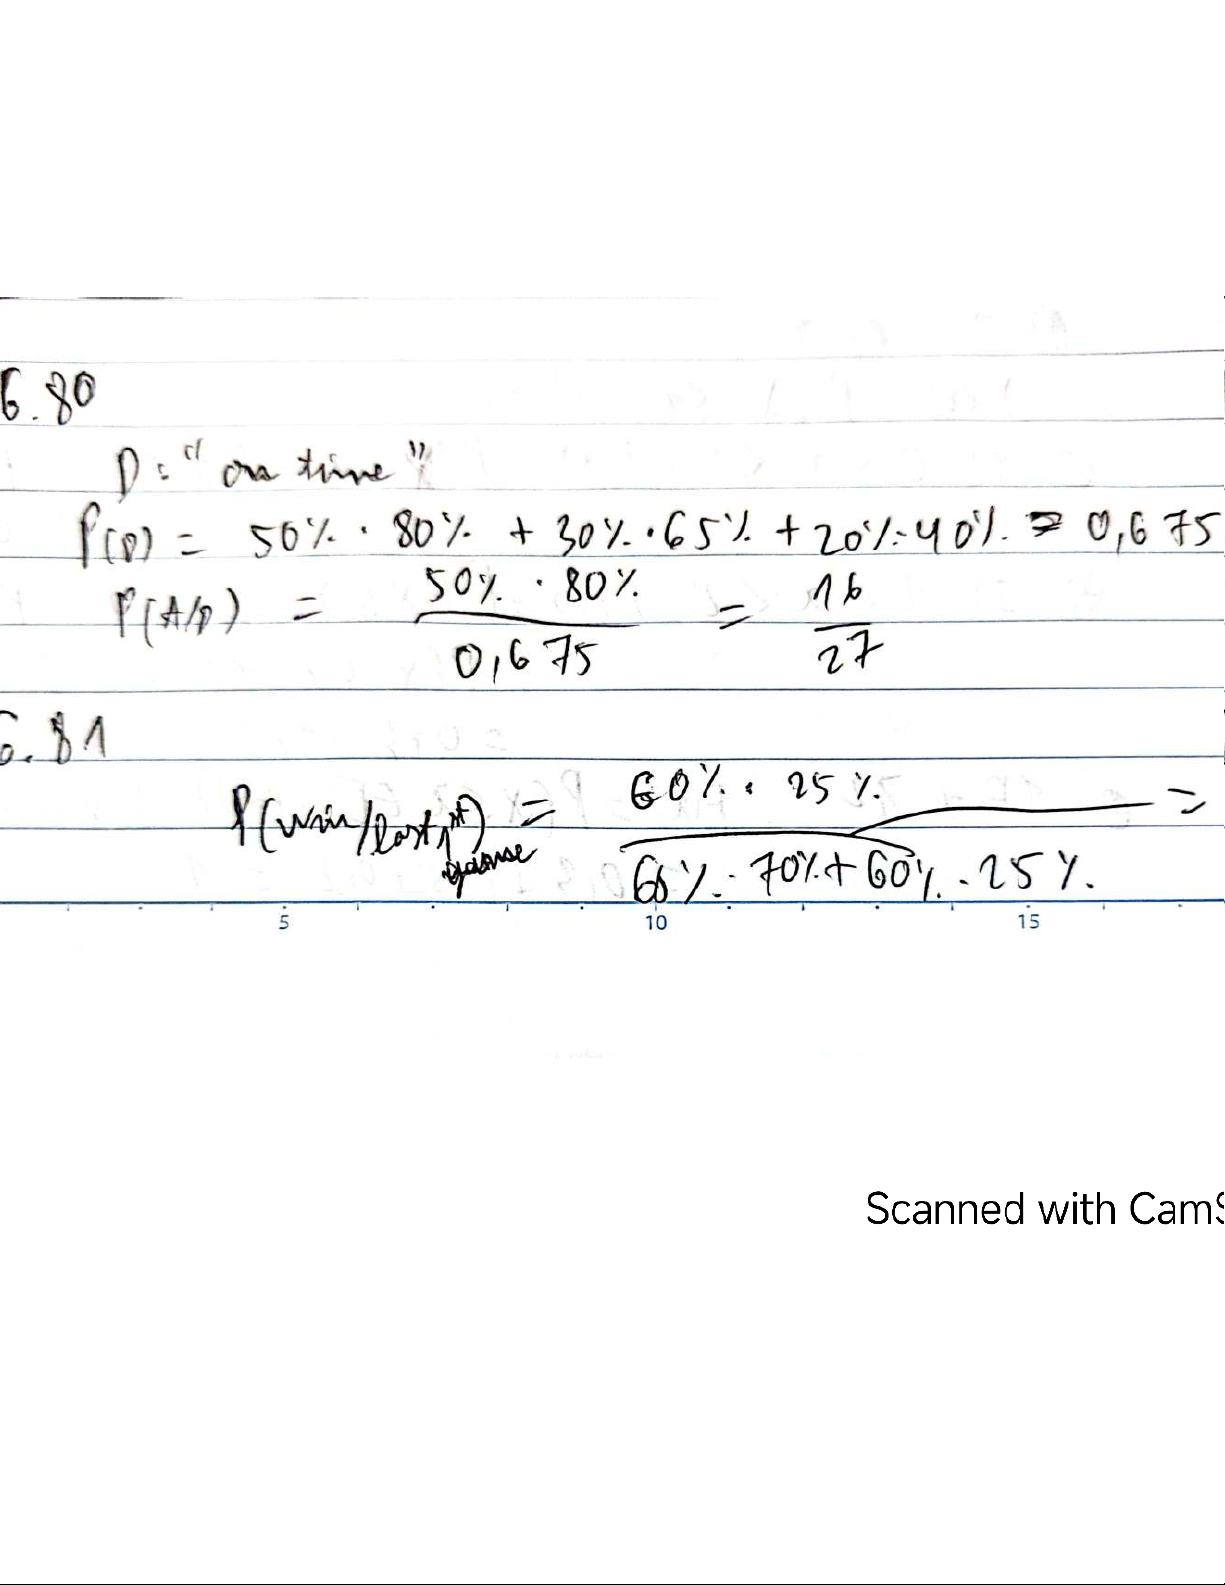 6.80
D: "on time"
P(D) = 50% · 80% + 30% · 65% + 20% · 40% = 0,675
P(A/D) = 50% · 80% / 0,675 = 16/27
6.81
P(win/lost 1st game) = 60% · 25% / 60% · 70% + 60% · 25% =
5 10 15
Scanned with CamS